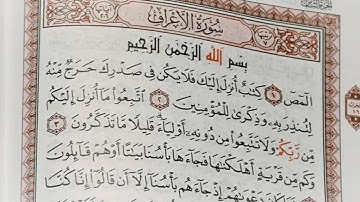 سُورَةُ الأَعْرَافِ
بِسْمِ اللَّهِ الرَّحْمَٰنِ الرَّحِيمِ
الٓمٓصٓ ١ كِتَٰبٌ أُنزِلَ إِلَيْكَ فَلَا يَكُن فِي صَدْرِكَ حَرَجٌ مِّنْهُ
لِتُنذِرَ بِهِۦ وَذِكْرَىٰ لِلْمُؤْمِنِينَ ٢ ٱتَّبِعُوا۟ مَآ أُنزِلَ إِلَيْكُم
مِّن رَّبِّكُمْ وَلَا تَتَّبِعُوا۟ مِن دُونِهِۦٓ أَوْلِيَآءَ قَلِيلًا مَّا تَذَكَّرُونَ ٣
وَكَم مِّن قَرْيَةٍ أَهْلَكْنَٰهَا فَجَآءَهَا بَأْسُنَا بَيَٰتًا أَوْ هُمْ قَآئِلُونَ
دَعْوَىٰهُمْ إِذْ جَآءَهُم بَأْسُنَآ إِلَّآ أَن قَالُوٓا۟ إِنَّا كُنَّا